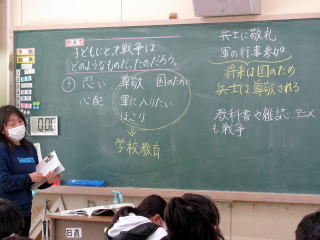 めあて
子どもにとって戦争は
どのようなものだったのだろう。
恐い 尊敬 国のために
心配 軍に入りたい
ほこり
学校教育
兵士に敬礼
軍の行事参加
将来は国のため
兵士は尊敬される
教科書や雑誌 アニメ
も戦争
日直